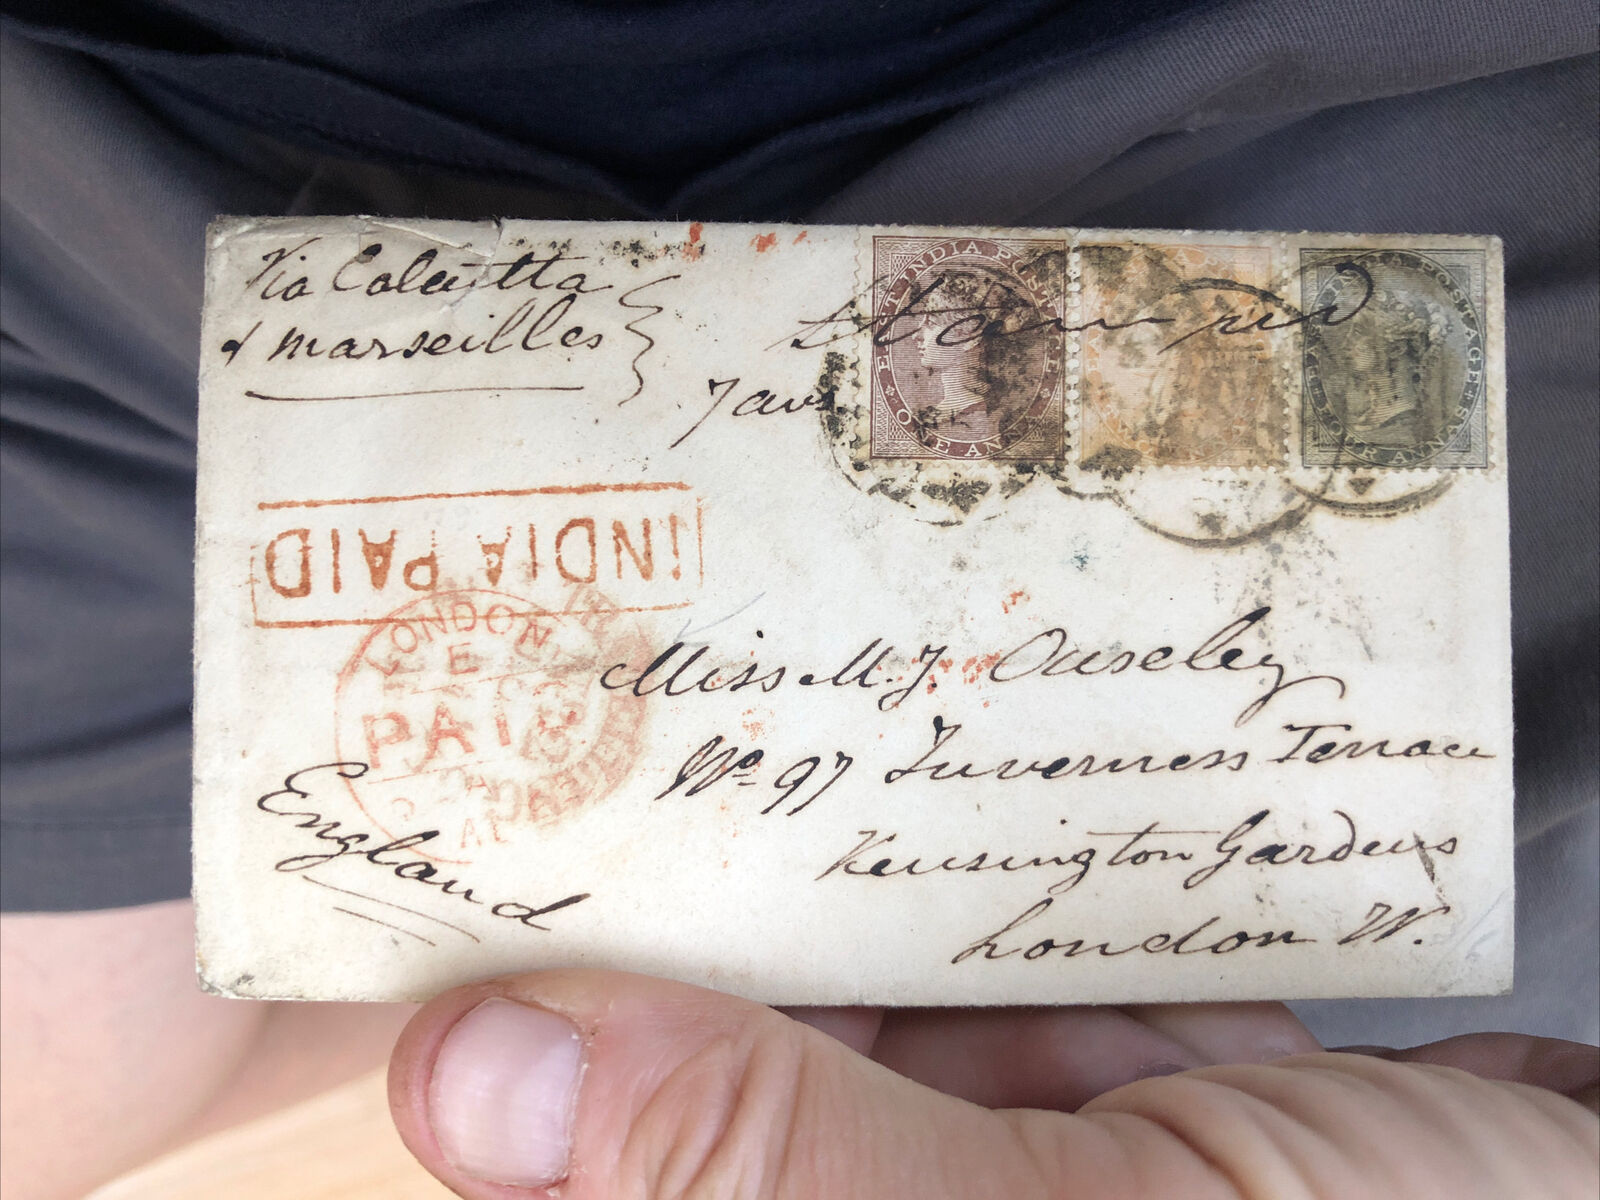 Via Calcutta
& Marseilles
Stamped
7 ans
EAST INDIA POSTAGE
ONE ANNA
EAST INDIA POSTAGE
FOUR ANNAS
INDIA PAID
LONDON
E
PAID
Miss M. J. Ouseley
No 97 Inverness Terrace
Kensington Gardens
London W.
England